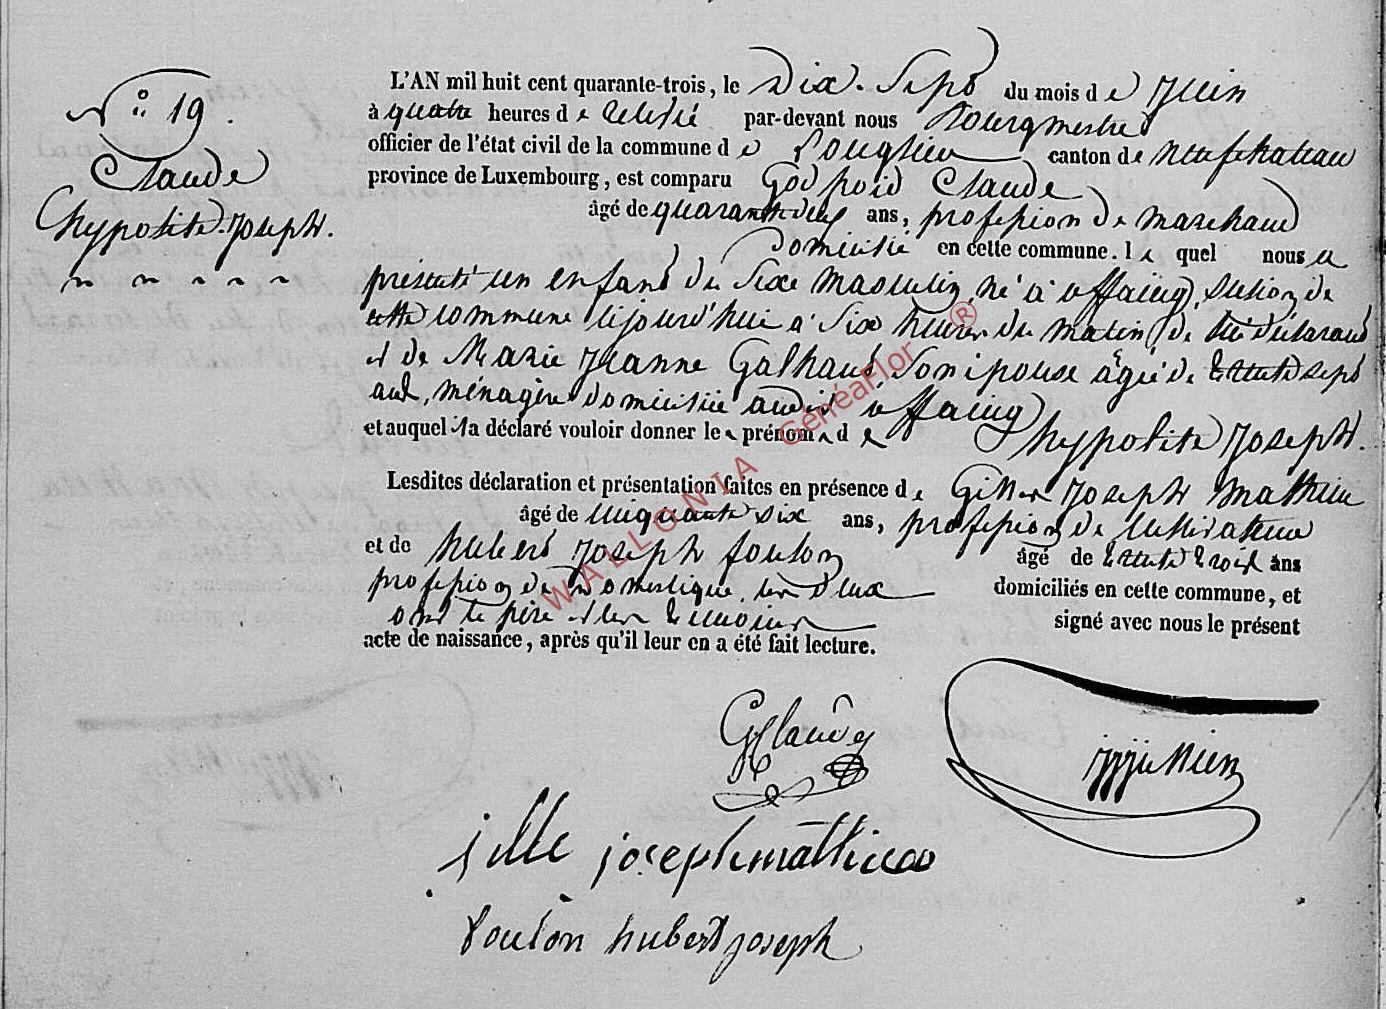 N° 19.
Claude
hypolite Joseph.
L'AN mil huit cent quarante-trois, le Dix-Sept du mois de Juin
à quatre heures de relevé par-devant nous Bourgmestre
officier de l'état civil de la commune de Longlier canton de neufchateau
province de Luxembourg, est comparu Godfroid Claude
âgé de quarante deux ans, profession de marchand
Domicilié en cette commune. le quel nous a
présenté un enfant du Sexe masculin, né à offaing, Section de
cette commune cejourd'hui à Six heures du matin, de lui déclarant
et de Marie Jeanne Galhaud Son épouse âgée de trente sept
ans, ménagère domiciliée audit offaing
et auquel il a déclaré vouloir donner les prénoms de hypolite Joseph.
Lesdites déclaration et présentation faites en présence de Gilles Joseph Mathieu
âgé de cinquante six ans, profession de cultivateur
et de hubert Joseph foulon âgé de trente trois ans
profession de Domestique, les deux domiciliés en cette commune, et
ont le père et les témoins signé avec nous le présent
acte de naissance, après qu'il leur en a été fait lecture.
GClaude
jille joseph mathieu
foulon hubert joseph
WALLONIA GénéaFlor ®